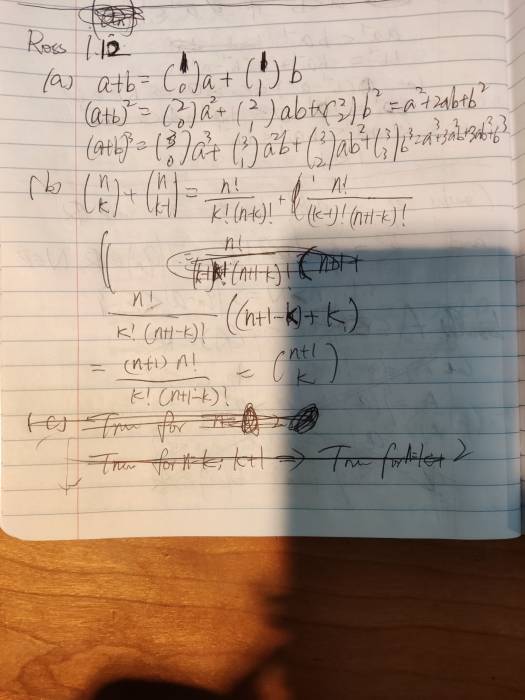 Ross 1.12
(a) a+b = (1 0)a + (1 1)b
(a+b)² = (2 0)a² + (2 1)ab + (2 2)b² = a²+2ab+b²
(a+b)³ = (3 0)a³ + (3 1)a²b + (3 2)ab² + (3 3)b³ = a³+3a²b+3ab²+b³
(b) (n k) + (n k-1) = n!/k!(n-k)! + n!/(k-1)!(n+1-k)!
n!/k!(n+1-k)! ((n+1-k)+k)
= (n+1) n!/k!(n+1-k)! = (n+1 k)
(c) True for n=
True for n=k, k+1 ⇒ True for n=k+2